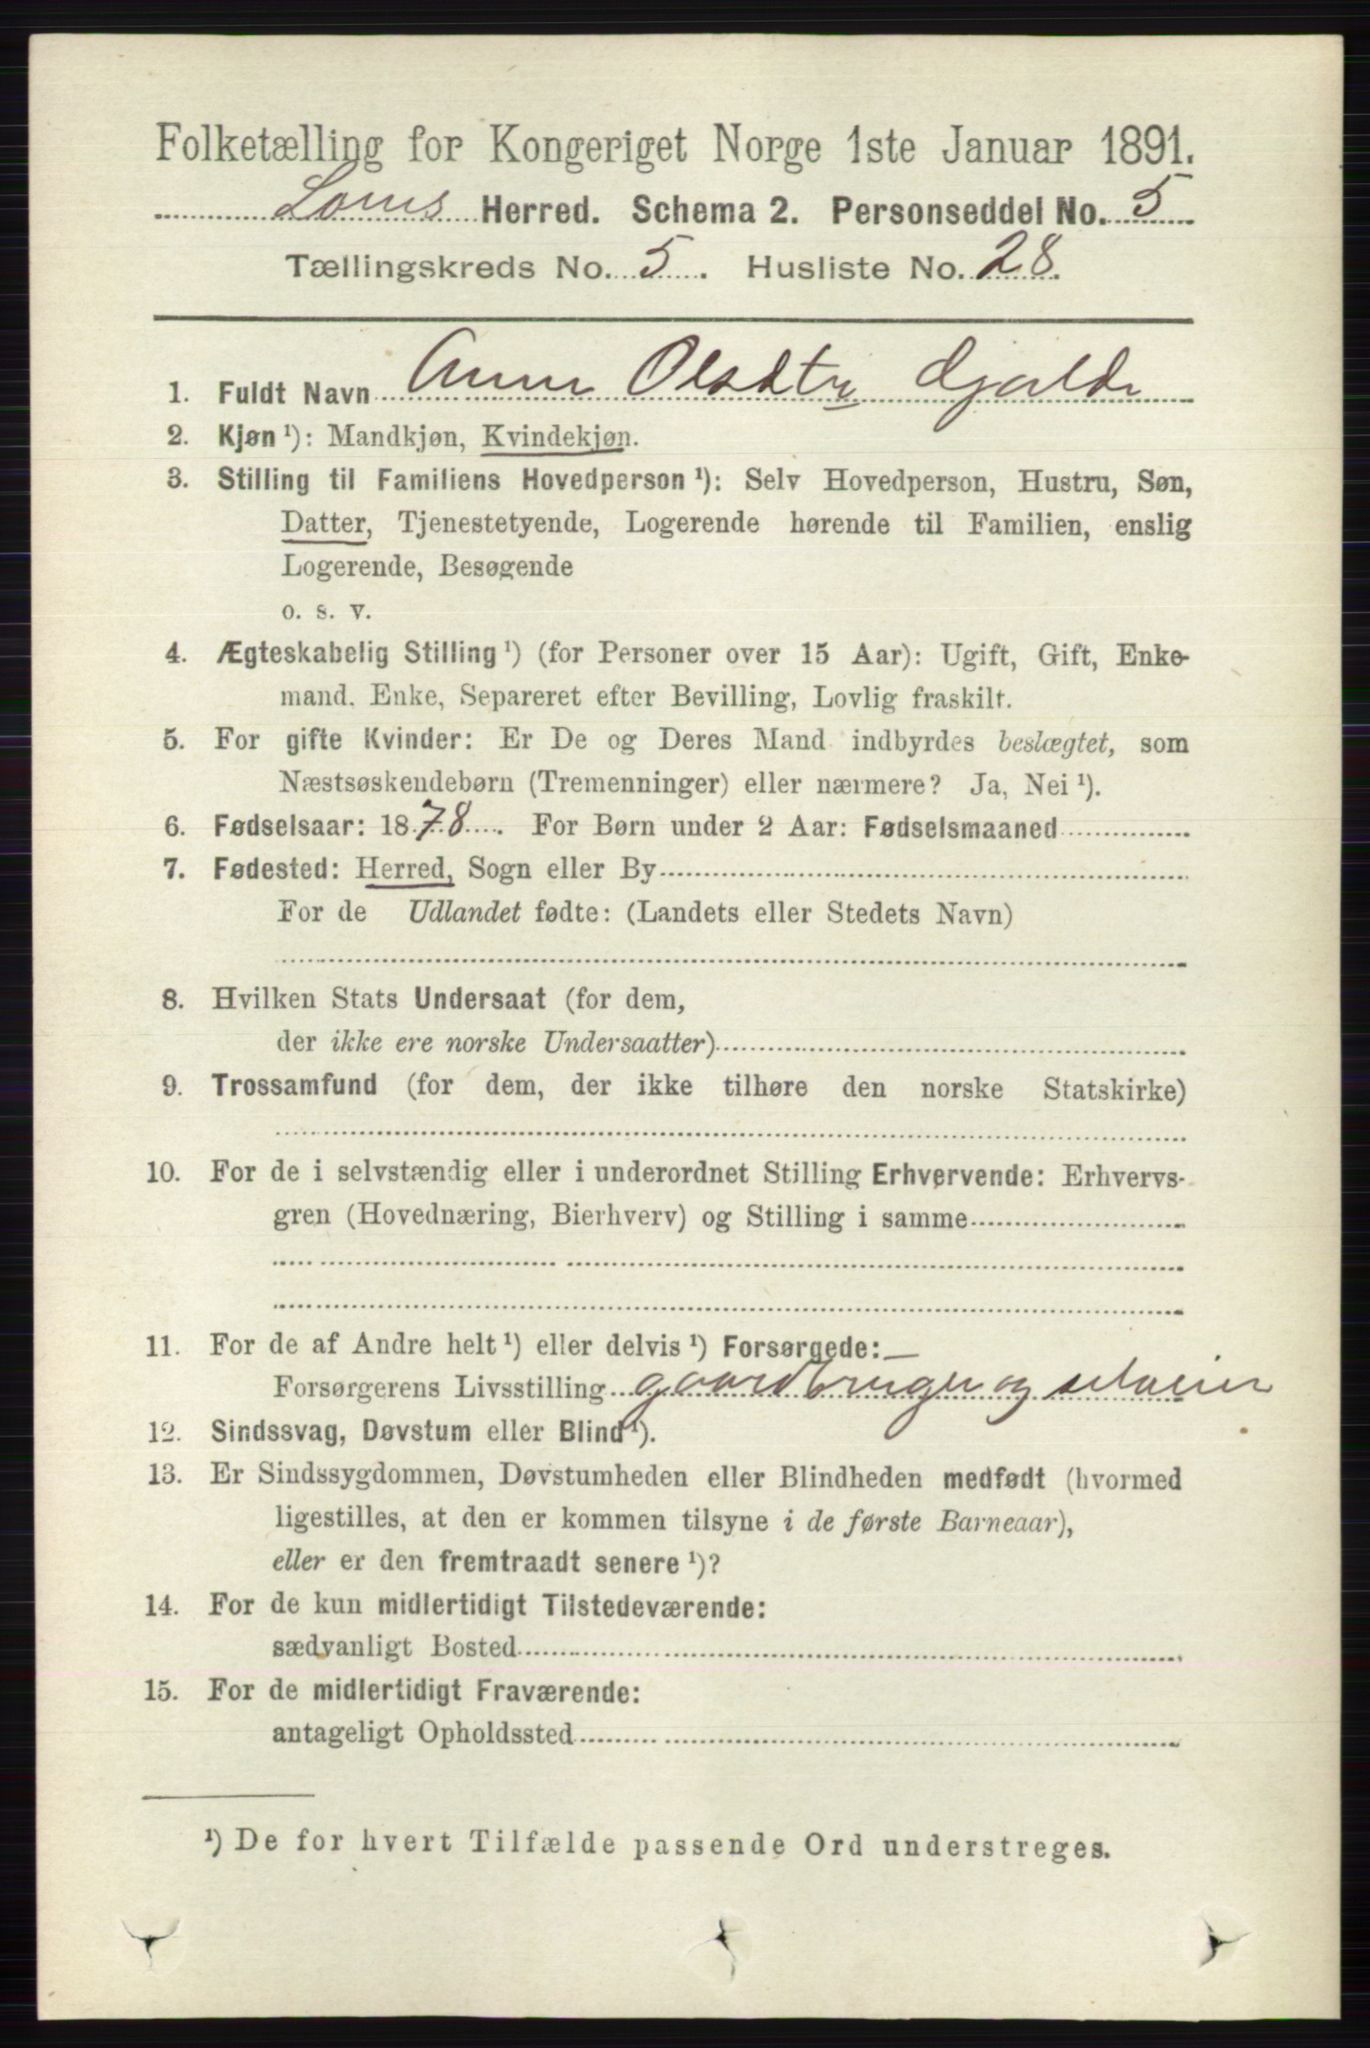 Folketælling for Kongeriget Norge 1ste Januar 1891.
Loms Herred. Schema 2. Personseddel No. 5
Tællingskreds No. 5. Husliste No. 28.
1. Fuldt Navn Anne Olsdtr Gjelde
2. Kjøn ¹): Mandkjøn, Kvindekjøn.
3. Stilling til Familiens Hovedperson ¹): Selv Hovedperson, Hustru, Søn,
Datter, Tjenestetyende, Logerende hørende til Familien, enslig
Logerende, Besøgende
o. s. v.
4. Ægteskabelig Stilling ¹) (for Personer over 15 Aar): Ugift, Gift, Enke-
mand, Enke, Separeret efter Bevilling, Lovlig fraskilt.
5. For gifte Kvinder: Er De og Deres Mand indbyrdes beslægtet, som
Næstsøskendebørn (Tremenninger) eller nærmere? Ja, Nei ¹).
6. Fødselsaar: 1878. For Børn under 2 Aar: Fødselsmaaned
7. Fødested: Herred, Sogn eller By
For de Udlandet fødte: (Landets eller Stedets Navn)
8. Hvilken Stats Undersaat (for dem,
der ikke ere norske Undersaatter)
9. Trossamfund (for dem, der ikke tilhøre den norske Statskirke)
10. For de i selvstændig eller i underordnet Stilling Erhvervende: Erhvervs-
gren (Hovednæring, Bierhverv) og Stilling i samme
11. For de af Andre helt ¹) eller delvis ¹) Forsørgede:
Forsørgerens Livsstilling gaardbruger og selveier
12. Sindssvag, Døvstum eller Blind ¹).
13. Er Sindssygdommen, Døvstumheden eller Blindheden medfødt (hvormed
ligestilles, at den er kommen tilsyne i de første Barneaar),
eller er den fremtraadt senere ¹)?
14. For de kun midlertidigt Tilstedeværende:
sædvanligt Bosted
15. For de midlertidigt Fraværende:
antageligt Opholdssted
¹) De for hvert Tilfælde passende Ord understreges.